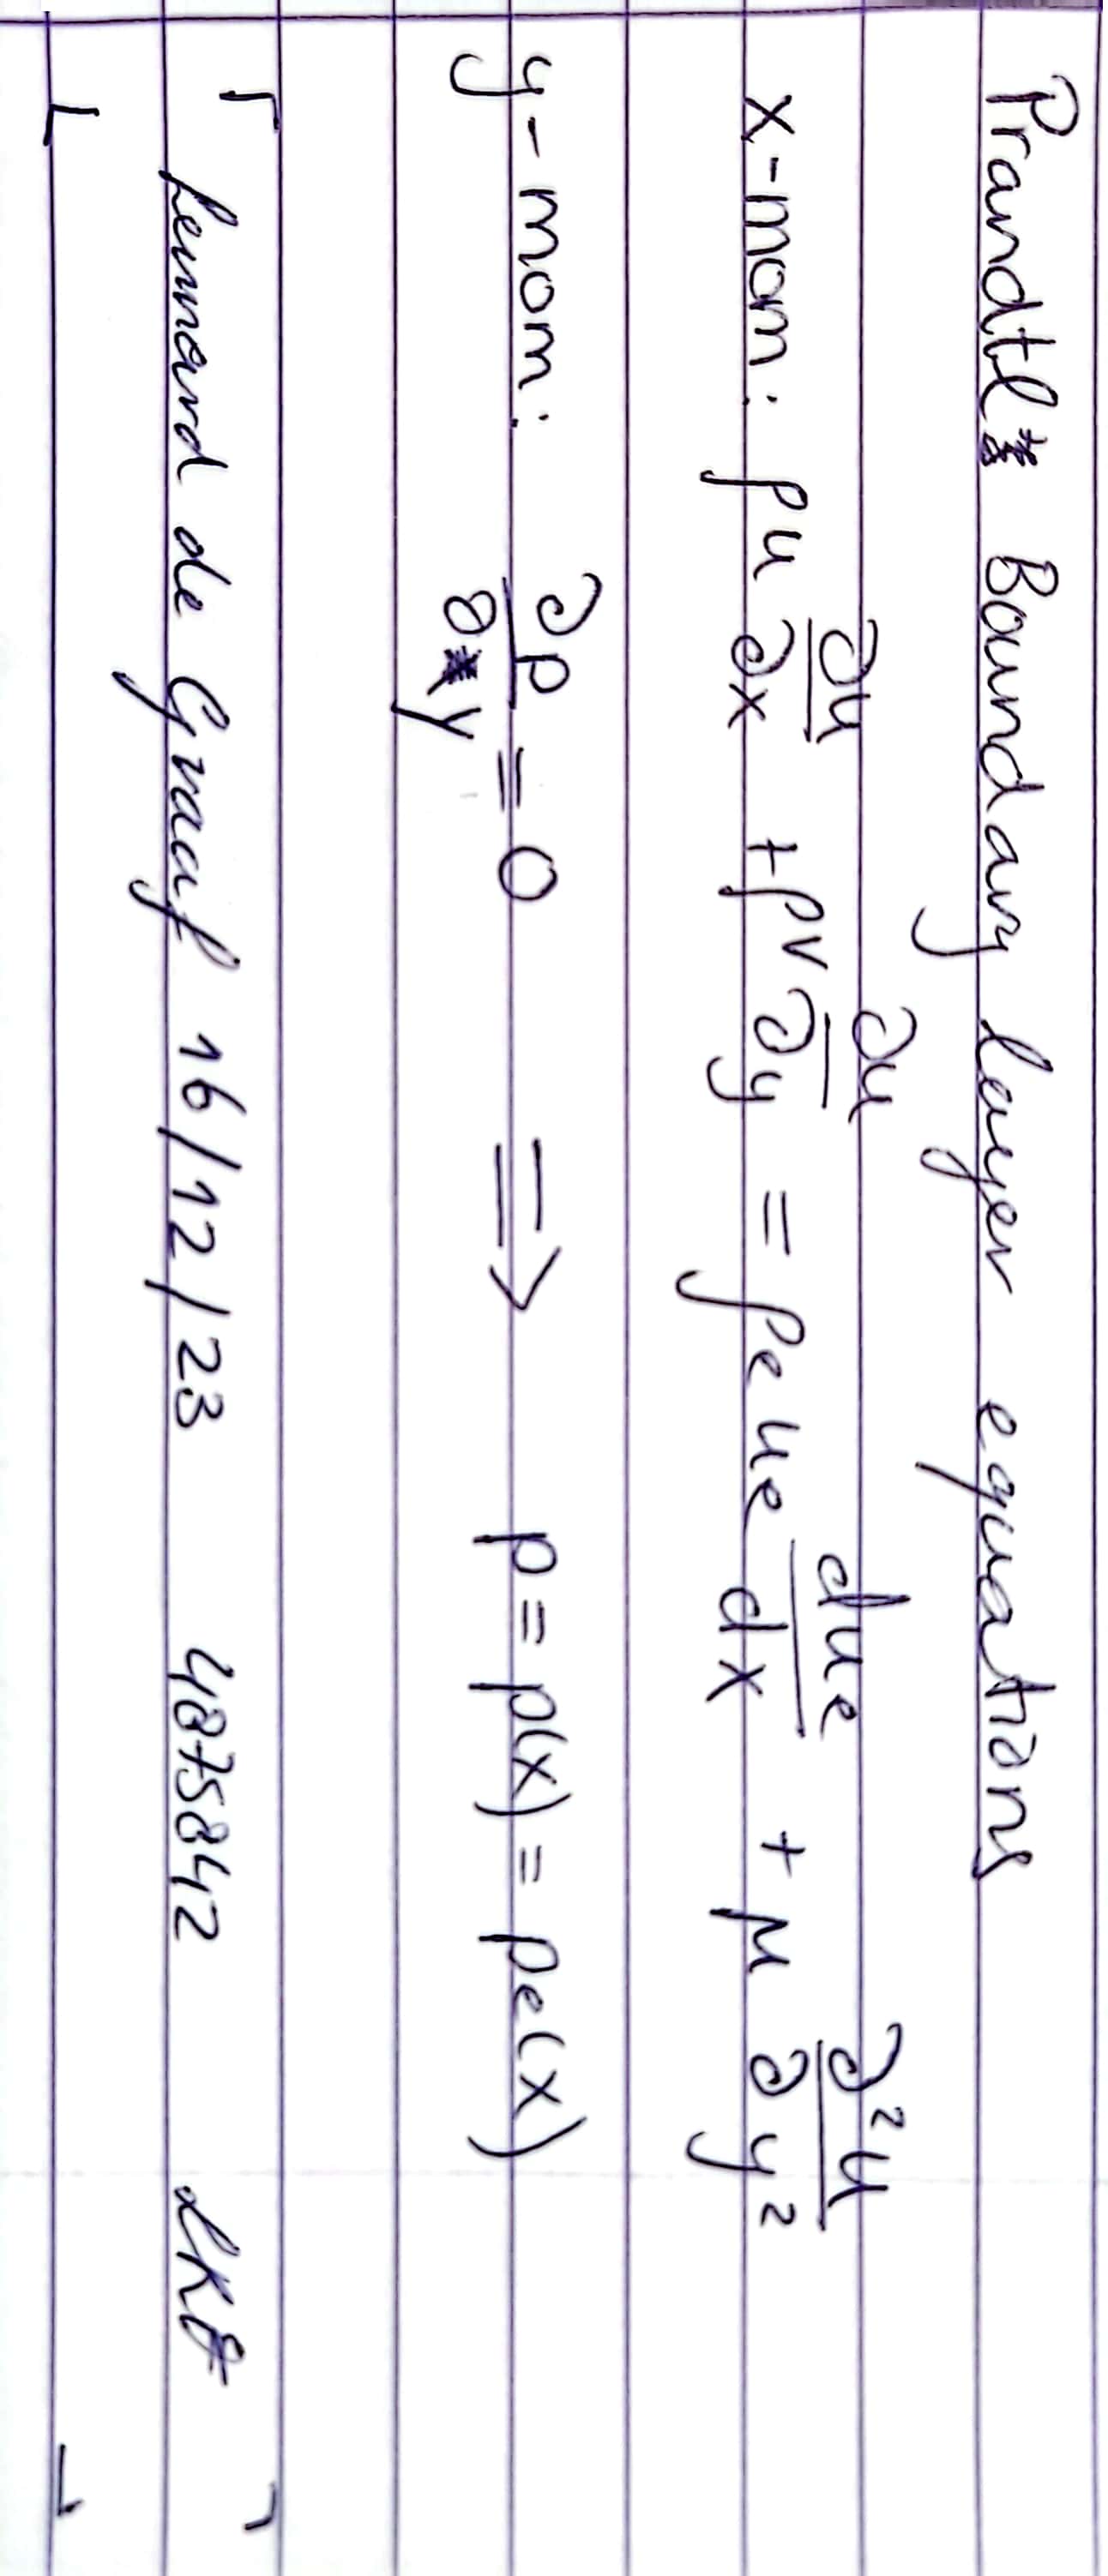 Prandtl's Boundary layer equations
x-mom: ρu ∂u/∂x + ρv ∂u/∂y = ρe ue due/dx + μ ∂²u/∂y²
y-mom: ∂p/∂y = 0 ⟹ p = p(x) = pe(x)
Lennard de Graaf 16/12/23 4875842